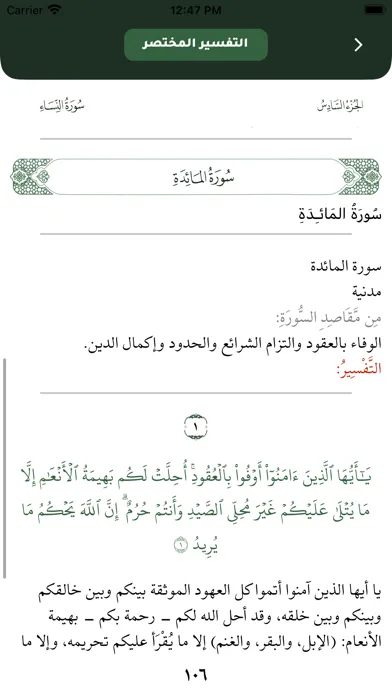 Carrier 12:47 PM
التفسير المختصر
الجُزْءُ السَّادِسُ سُورَةُ النِّسَاءِ
سُورَةُ المَائِدَةِ
سُورَةُ المَائـِدَةِ
سورة المائدة
مدنية
مِن مَّقَاصِدِ السُّورَةِ:
الوفاء بالعقود والتزام الشرائع والحدود وإكمال الدين.
التَّفْسِيرُ:
١
يَٰٓأَيُّهَا ٱلَّذِينَ ءَامَنُوٓاْ أَوۡفُواْ بِٱلۡعُقُودِۚ أُحِلَّتۡ لَكُم بَهِيمَةُ ٱلۡأَنۡعَٰمِ إِلَّا
مَا يُتۡلَىٰ عَلَيۡكُمۡ غَيۡرَ مُحِلِّي ٱلصَّيۡدِ وَأَنتُمۡ حُرُمٌۗ إِنَّ ٱللَّهَ يَحۡكُمُ مَا
يُرِيدُ ١
يا أيها الذين آمنوا أتموا كل العهود الموثقة بينكم وبين خالقكم
وبينكم وبين خلقه، وقد أحل الله لكم – رحمة بكم – بهيمة
الأنعام: (الإبل، والبقر، والغنم) إلا ما يُقْرَأ عليكم تحريمه، وإلا ما
١٠٦